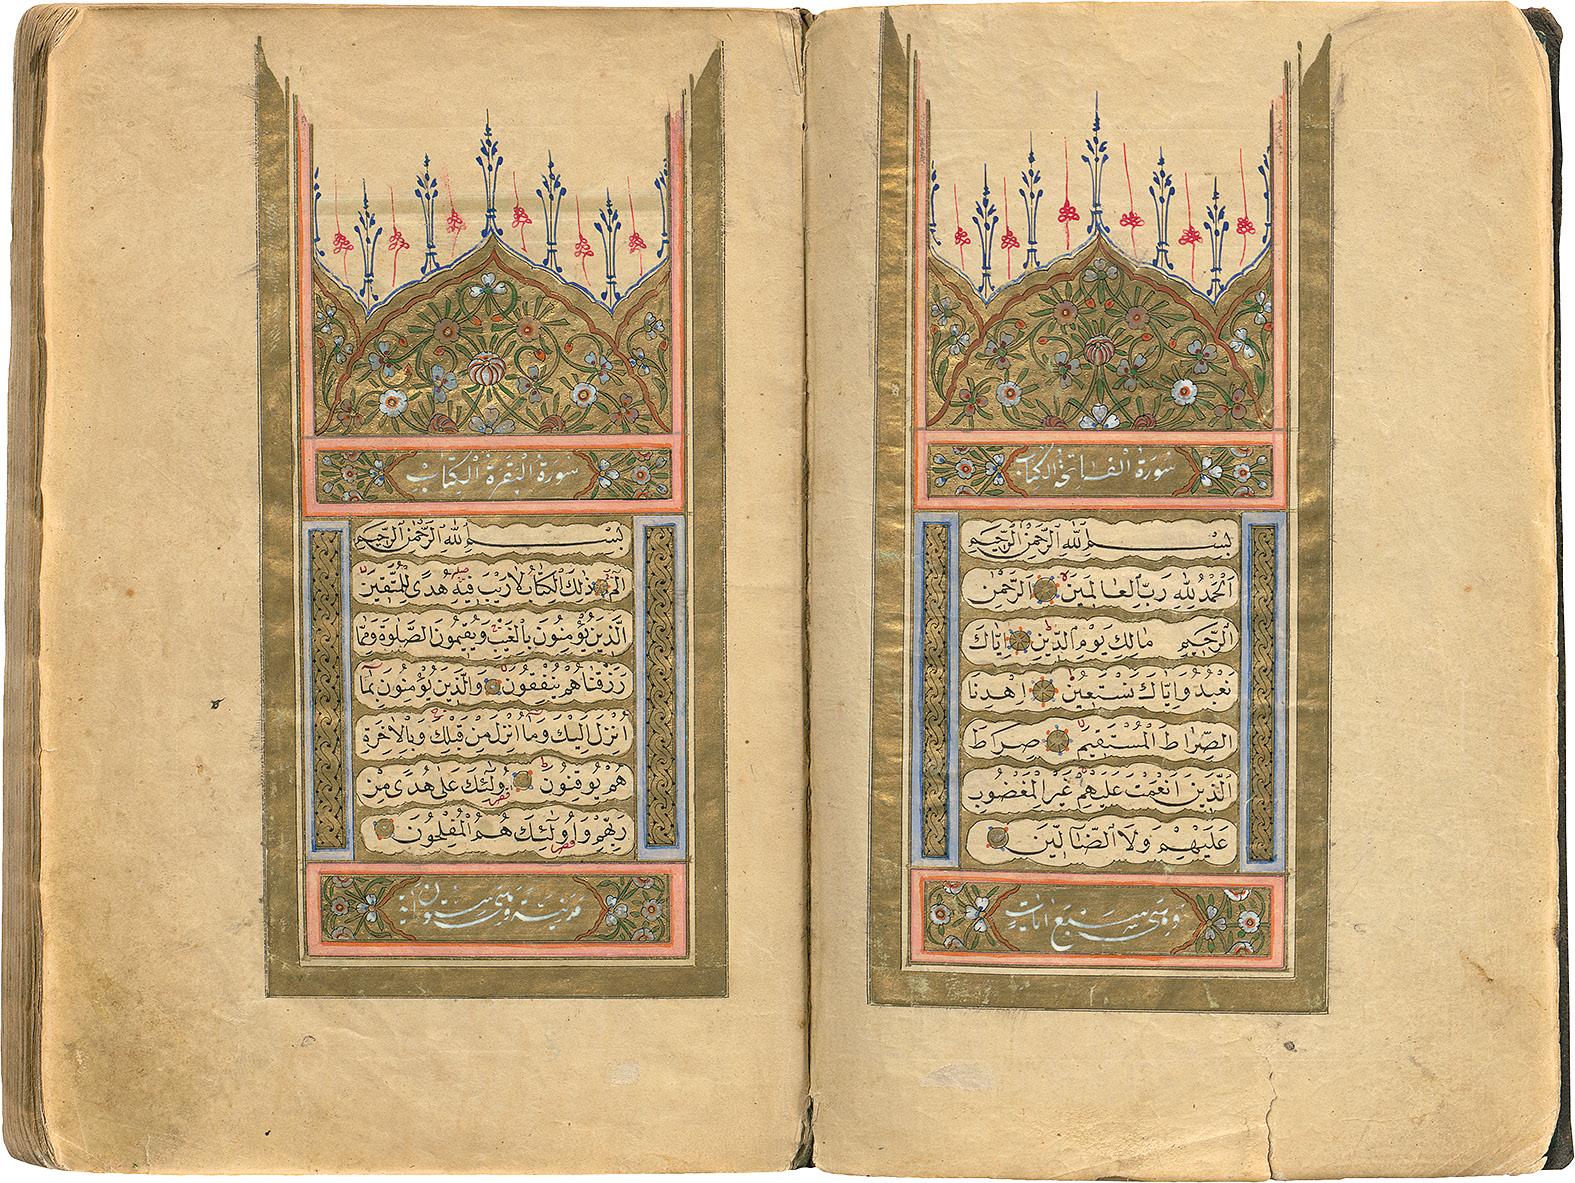 سورة الفاتحة الكتاب
بِسْمِ اللهِ الرَّحْمٰنِ الرَّحِيمِ
اَلْحَمْدُ لِلّٰهِ رَبِّ الْعَالَمِينَ الرَّحْمٰنِ
الرَّحِيمِ مَالِكِ يَوْمِ الدِّينِ اِيَّاكَ
نَعْبُدُ وَاِيَّاكَ نَسْتَعِينُ اِهْدِنَا
الصِّرَاطَ الْمُسْتَقِيمَ صِرَاطَ
الَّذِينَ اَنْعَمْتَ عَلَيْهِمْ غَيْرِ الْمَغْضُوبِ
عَلَيْهِمْ وَلَا الضَّالِّينَ
وهى سبع آيات
سورة البقرة الكتاب
بِسْمِ اللهِ الرَّحْمٰنِ الرَّحِيمِ
الٓمٓ ذٰلِكَ الْكِتَابُ لَا رَيْبَ فِيهِ هُدًى لِلْمُتَّقِينَ
الَّذِينَ يُؤْمِنُونَ بِالْغَيْبِ وَيُقِيمُونَ الصَّلٰوةَ وَمِمَّا
رَزَقْنَاهُمْ يُنْفِقُونَ وَالَّذِينَ يُؤْمِنُونَ بِمَٓا
اُنْزِلَ اِلَيْكَ وَمَٓا اُنْزِلَ مِنْ قَبْلِكَ وَبِالْاٰخِرَةِ
هُمْ يُوقِنُونَ اُولٰٓئِكَ عَلٰى هُدًى مِنْ
رَبِّهِمْ وَاُولٰٓئِكَ هُمُ الْمُفْلِحُونَ
مدنية وهى